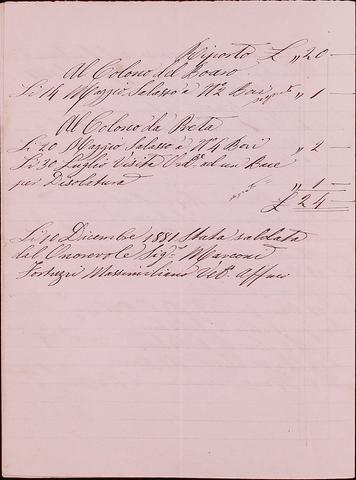 Riporto £ „ 20 —
Al Colono del Boaro
Li 14 Maggio Salasso a N.º 2 Bovi „ 1 —
Al Colono da Reta
Li 20 Maggio Salasso a N.º 4 Bovi „ 2 —
Li 30 Luglio Visita ad un Bue
per Disolatura „ 1 —
£ 24 —
Li 10 Dicembre 1881 Stata saldata
dal Onorevole Sig.r Marconi
Massimiliano